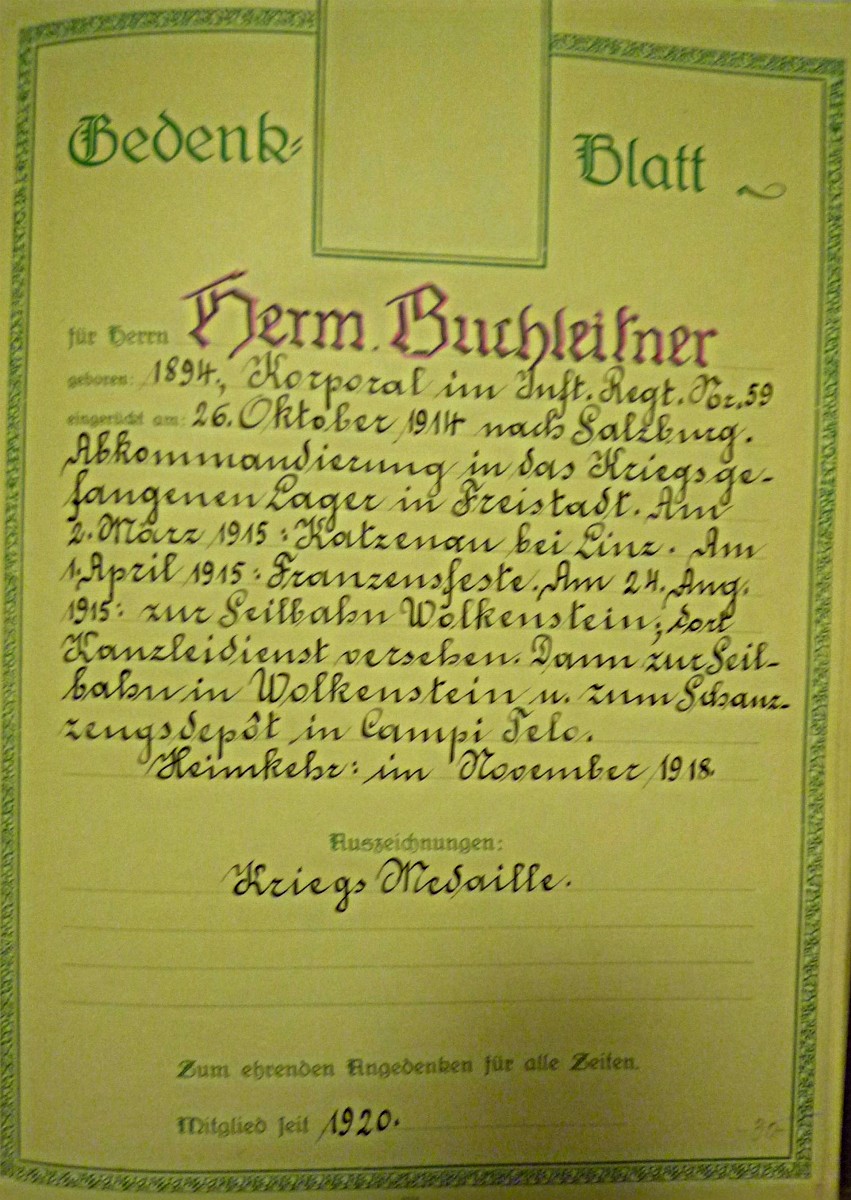 Gedenk-Blatt
für Herrn Herm. Buchleitner
geboren: 1894, Korporal im Inft. Regt. Nr. 59
eingerückt am: 26. Oktober 1914 nach Salzburg.
Abkommandierung in das Kriegsge-
fangenen Lager in Freistadt. Am
2. März 1915: Katzenau bei Linz. Am
1. April 1915: Franzensfeste. Am 24. Aug.
1915: zur Seilbahn Wolkenstein; dort
Kanzleidienst versehen. Dann zur Seil-
bahn in Wolkenstein u. zum Schanz-
zeugsdepôt in Campi Telo.
Heimkehr: im November 1918.
Auszeichnungen:
Kriegs Medaille.
Zum ehrenden Angedenken für alle Zeiten.
Mitglied seit 1920.